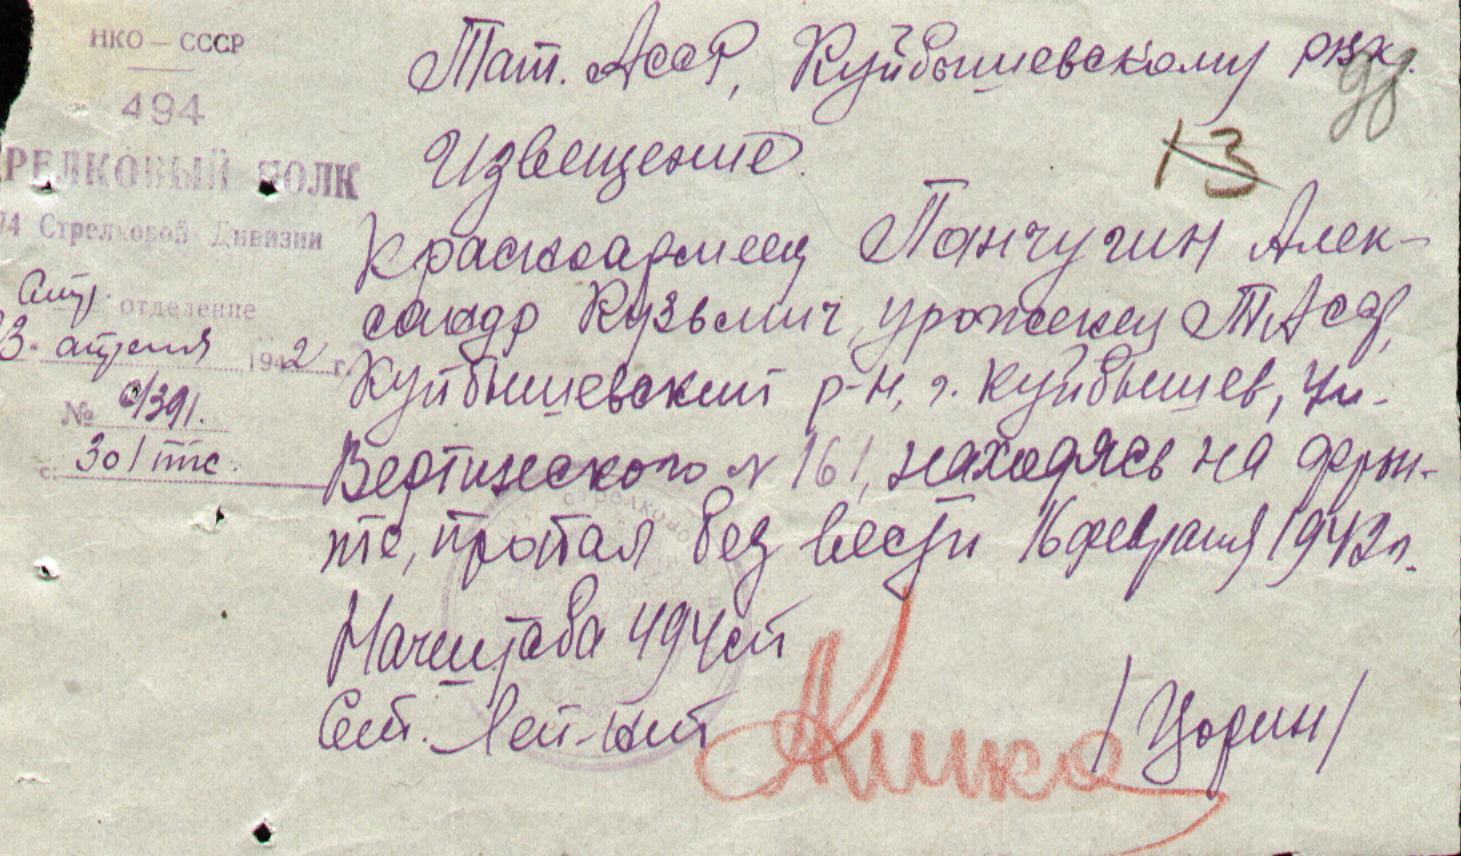 НКО – СССР
494
РЕЛКОВЫЙ ПОЛК
74 Стрелковой Дивизии
отделение
3. апреля 1942 г.
№ с/391.
с. 301 ппс.
Тат. АССР, Куйбышевскому рвк.
98
13
Извещение.
Красноармеец Панчугин Алек-
сандр Кузьмич, уроженец ТАССР,
Куйбышевский р-н, г. Куйбышев, ул.
№ 161, находясь на фрон-
те, пропал без вести 16 февраля 1942 г.
Начштаба 494 сп
Ст. Лей-нт
/Цорин/
стрелково